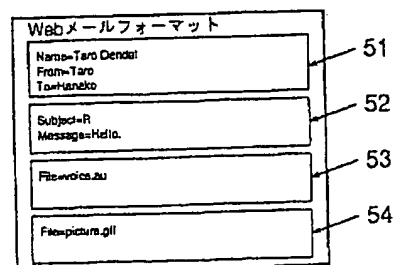 Webメールフォーマット
Name=Taro Dendai
From=Taro
To=Hanako
51
Subject=R
Message=Hello.
52
File=voice.au
53
File=picture.gif
54